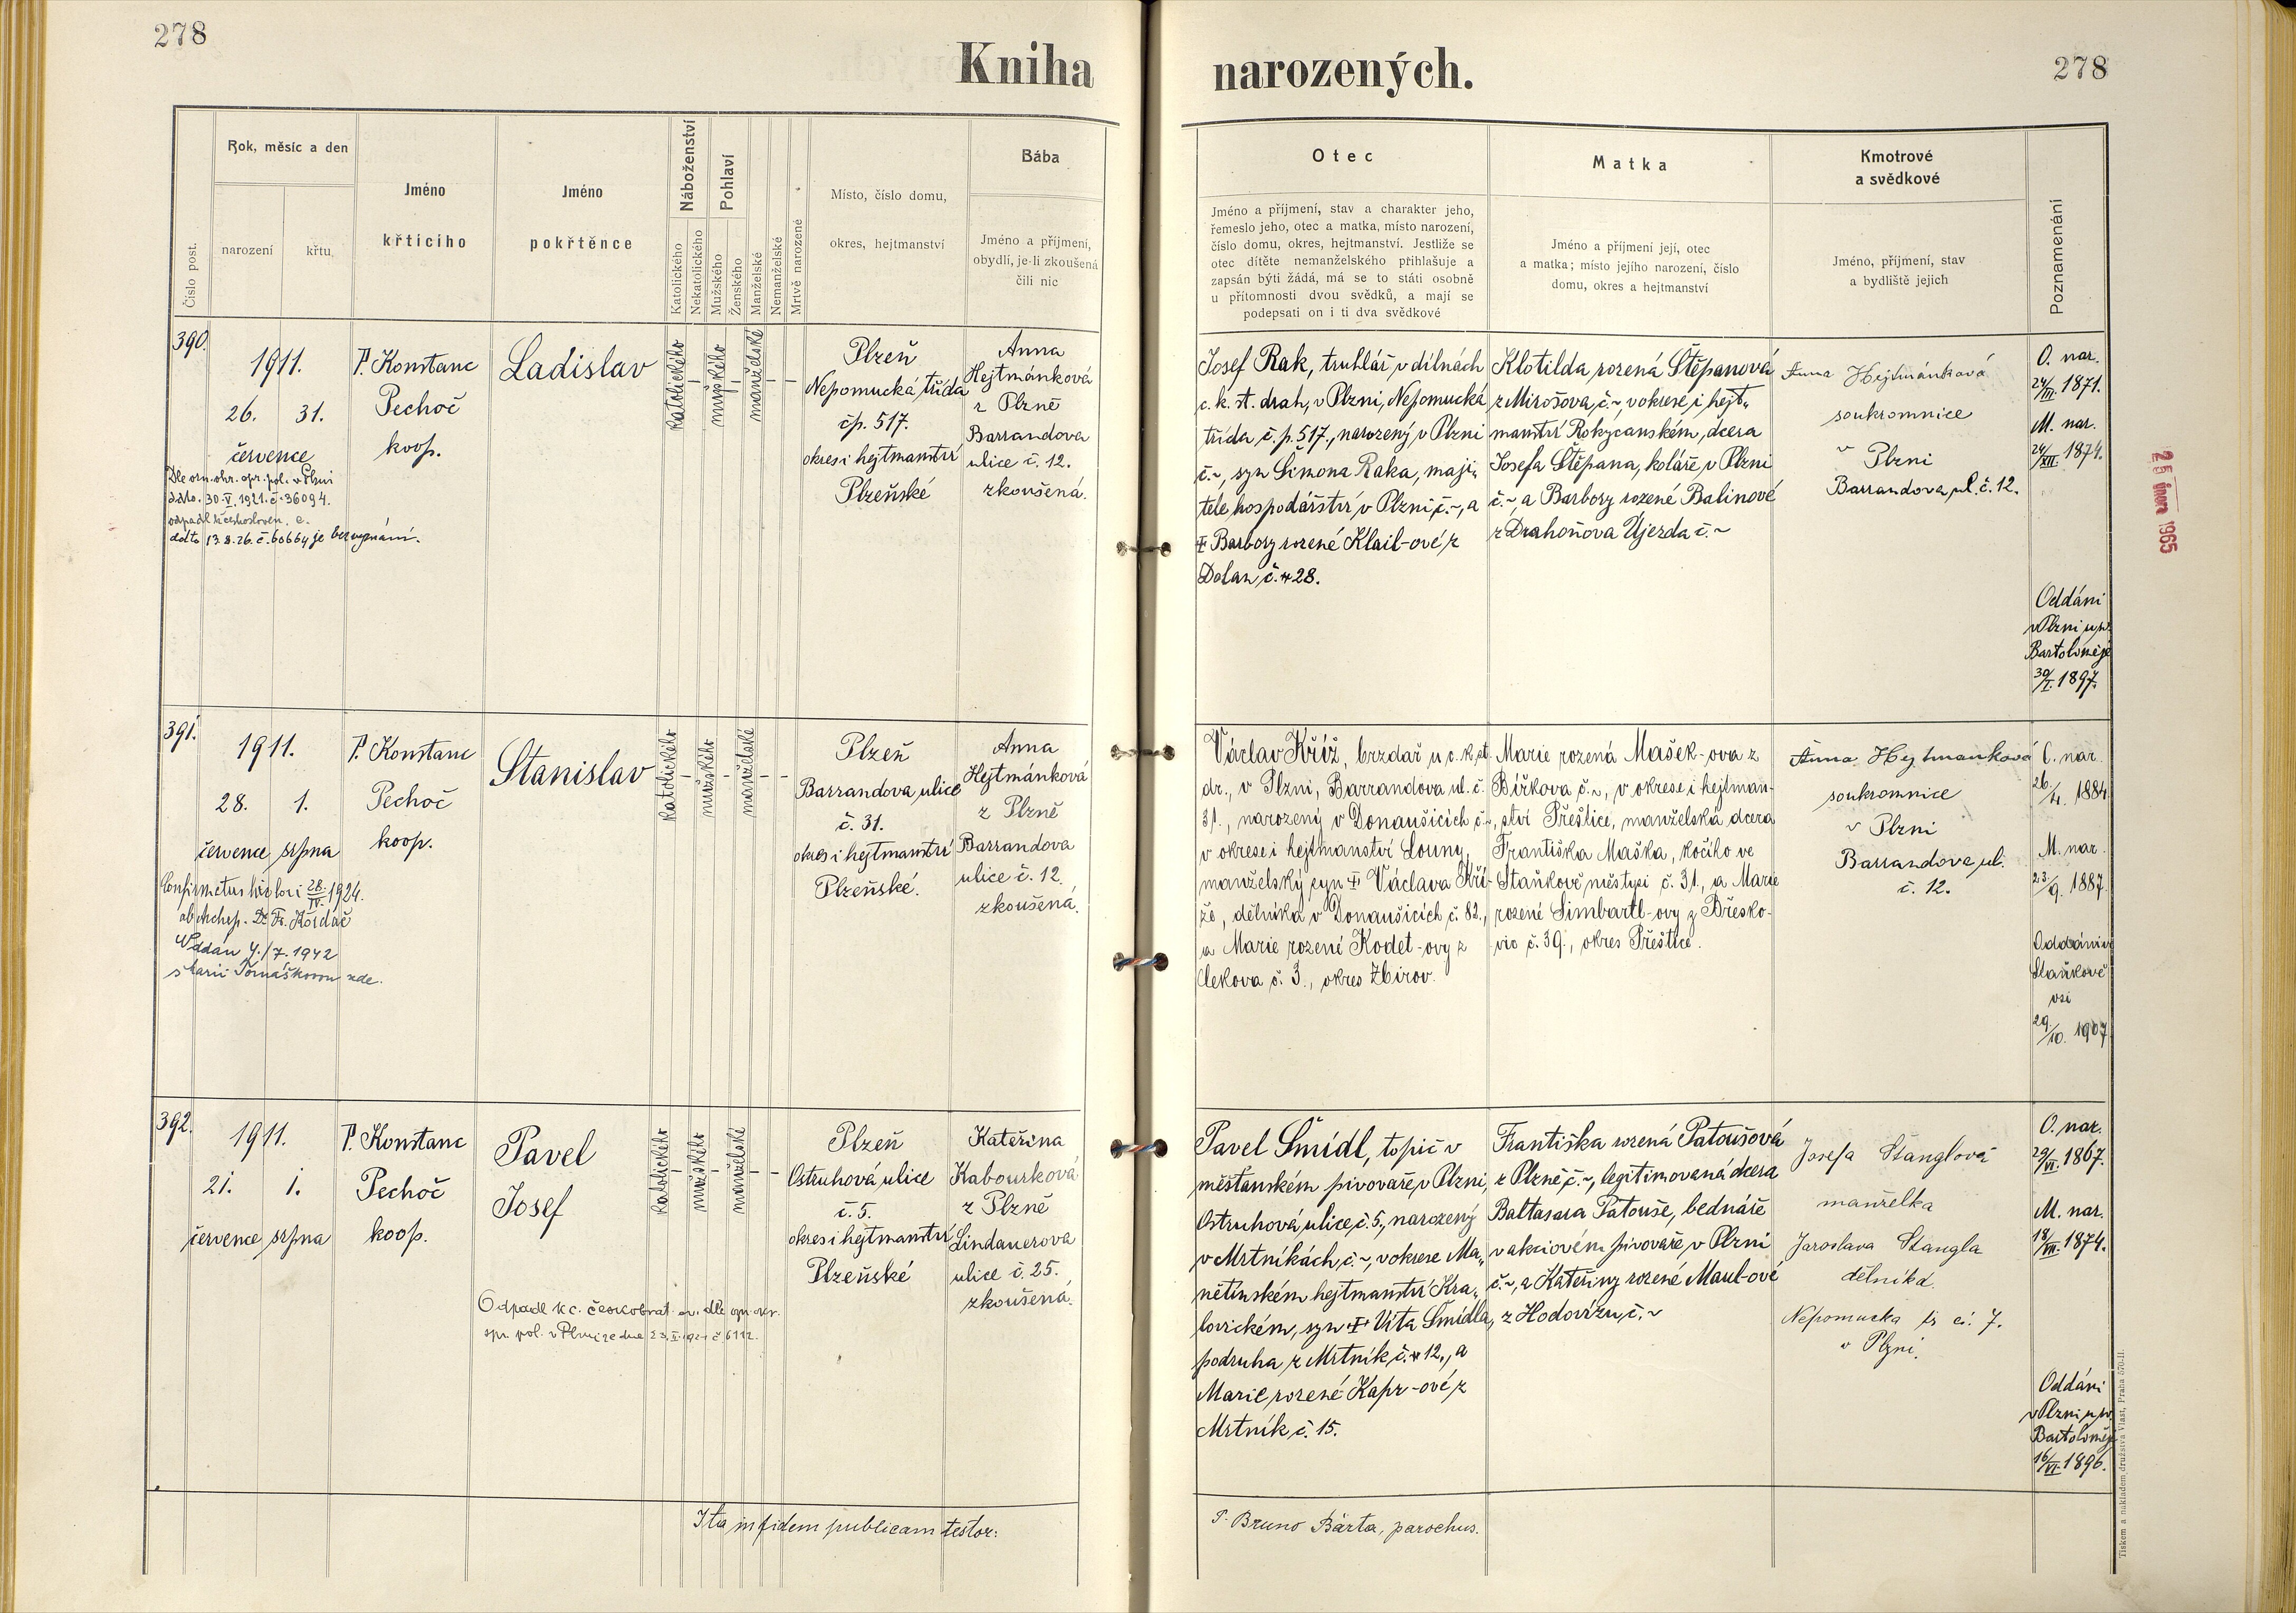 278
Kniha
narozených.
278
Číslo post.
Rok, měsíc a den
narození
křtu
Jméno
křtícího
Jméno
pokřtěnce
Náboženství
Katolického
Nekatolického
Pohlaví
Mužského
Ženského
Manželské
Nemanželské
Mrtvě narozené
Místo, číslo domu,
okres, hejtmanství
Bába
Jméno a příjmení,
obydlí, je-li zkoušená
čili nic
Otec
Jméno a příjmení, stav a charakter jeho,
řemeslo jeho, otec a matka, místo narození,
číslo domu, okres, hejtmanství. Jestliže se
otec dítěte nemanželského přihlašuje a
zapsán býti žádá, má se to státi osobně
u přítomnosti dvou svědků, a mají se
podepsati on i ti dva svědkové
Matka
Jméno a příjmení její, otec
a matka; místo jejího narození, číslo
domu, okres a hejtmanství
Kmotrové
a svědkové
Jméno, příjmení, stav
a bydliště jejich
Poznamenání
390.
1911.
26. 31.
července
Dle ozn. okr. spr. pol. v Plzni
ddto. 30.V.1921. č. 36094.
odpadl k českosloven. c.
ddto 13.8.26. č. 60664 je bez vyznání.
P. Konstanc
Pechoč
koop.
Ladislav
katolického
–
mužského
–
manželské
–
–
Plzeň
Nepomucká třída
čp. 517.
okres i hejtmanství
Plzeňské
Anna
Hejtmánková
z Plzně
Barrandova
ulice č. 12.
zkoušená.
Josef Rak, truhlář v dílnách
c. k. st. drah, v Plzni, Nepomucká
třída č. p. 517., narozený v Plzni
č. ~, syn Šimona Raka, maji„
tele hospodářství v Plzni, č. ~, a
‡ Barbory rozené Klail-ové z
Dolan č. 28.
Klotilda rozená Štěpanová
z Mirošova, č. ~, v okrese i hejt„
manství Rokycanském, dcera
Josefa Štěpana, koláře v Plzni
č. ~, a Barbory rozené Balinové
z Drahoňova Újezda č. ~
Anna Hejtmánková
soukromnice
v Plzni
Barrandova ul. č. 12.
O. nar.
24/III. 1871.
M. nar.
24/XII. 1874.
Oddáni
v Plzni u sv.
Bartoloměje
30/I. 1897.
25 února 1965
391.
1911.
28. 1.
července srpna
28./IV. 1924.
Dr. Fr. Kordač
Oddán 4./7. 1942
s Marií Tomáškovou zde.
P. Konstanc
Pechoč
koop.
Stanislav
katolického
–
mužského
–
manželské
–
–
Plzeň
Barrandova ulice
č. 31.
okres i hejtmanství
Plzeňské.
Anna
Hejtmánková
z Plzně
Barrandova
ulice č. 12.
zkoušená.
Václav Kříž, brzdař u c. k. st.
dr., v Plzni, Barrandova ul. č.
31., narozený v Donaušicích č. ~,
v okrese i hejtmanství Louny,
manželský syn ‡ Václava Kří-
že, dělníka v Donaušicích č. 82.,
a Marie rozené Kodet-ovy z
Clekova č. 3., okres Zbirov.
Marie rozená Mašek-ova z
Bířkova č. ~, v okrese i hejtman-
ství Přeštice, manželská dcera
Františka Maška, kočího ve
Staňkově městysi č. 31., a Marie
rozené Simbartl-ovy z Břesko-
vic č. 39., okres Přeštice.
Anna Hejtmanková
soukromnice
v Plzni
Barrandova ul.
č. 12.
O. nar.
26./4. 1884.
M. nar.
23./9. 1887.
Oddáni v
Staňkově
vsi
29/10. 1907.
392.
1911.
21. 1.
července srpna
P. Konstanc
Pechoč
koop.
Pavel
Josef
Odpadl k c. českobrat. ev. dle ozn. okr.
spr. pol. v Plzni ze dne 23.II.1921 č. 6112.
katolického
–
mužského
–
manželské
–
–
Plzeň
Ostruhová ulice
č. 5.
okres i hejtmanství
Plzeňské
Kateřina
Kabourková
z Plzně
Lindauerova
ulice č. 25.
zkoušená.
Pavel Šmídl, topič v
měšťanském pivovaře v Plzni,
Ostruhová ulice, č. 5., narozený
v Mrtníkách, č. ~, v okrese Ma„
nětínském hejtmanství Kra„
lovickém, syn ‡ Víta Šmídla,
podruha z Mrtník, č. 12., a
Marie rozené Kapr-ové z
Mrtník č. 15.
Františka rozená Patoušová
z Plzně č. ~, legitimovaná dcera
Baltasara Patouše, bednáře
v akciovém pivovaře v Plzni
č. ~, a Kateřiny rozené Maul-ové
z Hodovizu, č. ~
Josefa Štanglová
manželka
Jaroslava Štangla
dělníka
Nepomucka tř. čí. 7.
v Plzni.
O. nar.
29/VI. 1867.
M. nar.
18/VII. 1874.
Oddáni
v Plzni u sv.
Bartoloměje
16/VI. 1896.
Ita in fidem publicam testor:
P. Bruno Bárta, parochus.
Tiskem a nákladem družstva Vlast, Praha 570-II.